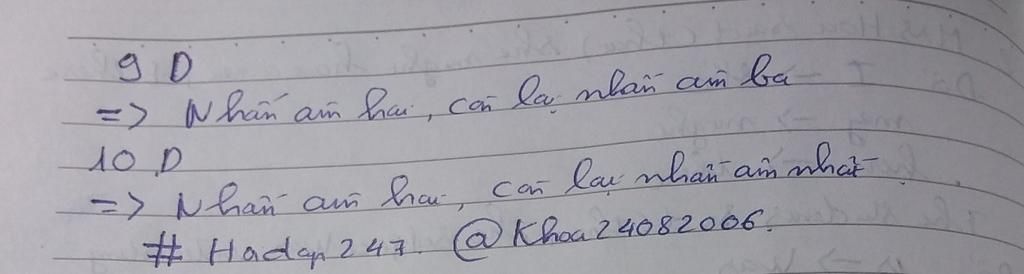 9 D
=> Nhấn âm hai, còn lại nhấn âm ba
10 D
=> Nhấn âm hai, còn lại nhấn âm nhất
# Hoidap247. @Khoa24082006.